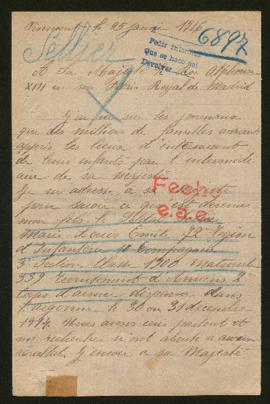 le 25 janvier 1916
6897
Sellier
Pedir
Que se haga
Devolver
A Sa Majesté Don Alphonse
XIII en son Palais Royal de Madrid
J'ai lu sur les journaux
que des milliers de familles avaient
appris les lieux d'internement
de leurs enfants par l'intermédi
aire de sa majesté
Je m'adresse à sa
Fecho
pour savoir ce qu'est devenu
e.s.e.
mon fils le
Marie Louis Emile 72 Région
d'Infanterie 10 Compagnie
3 Section Classe 1902 matricule
339 recrutement d'Amiens 2
Corps d'armée disparu dans
l'argonne le 30 ou 31 décembre
1914. Nous avons écrit partout et
nos recherches n'ont abouti à aucun
résultat. J'envoie à sa Majesté